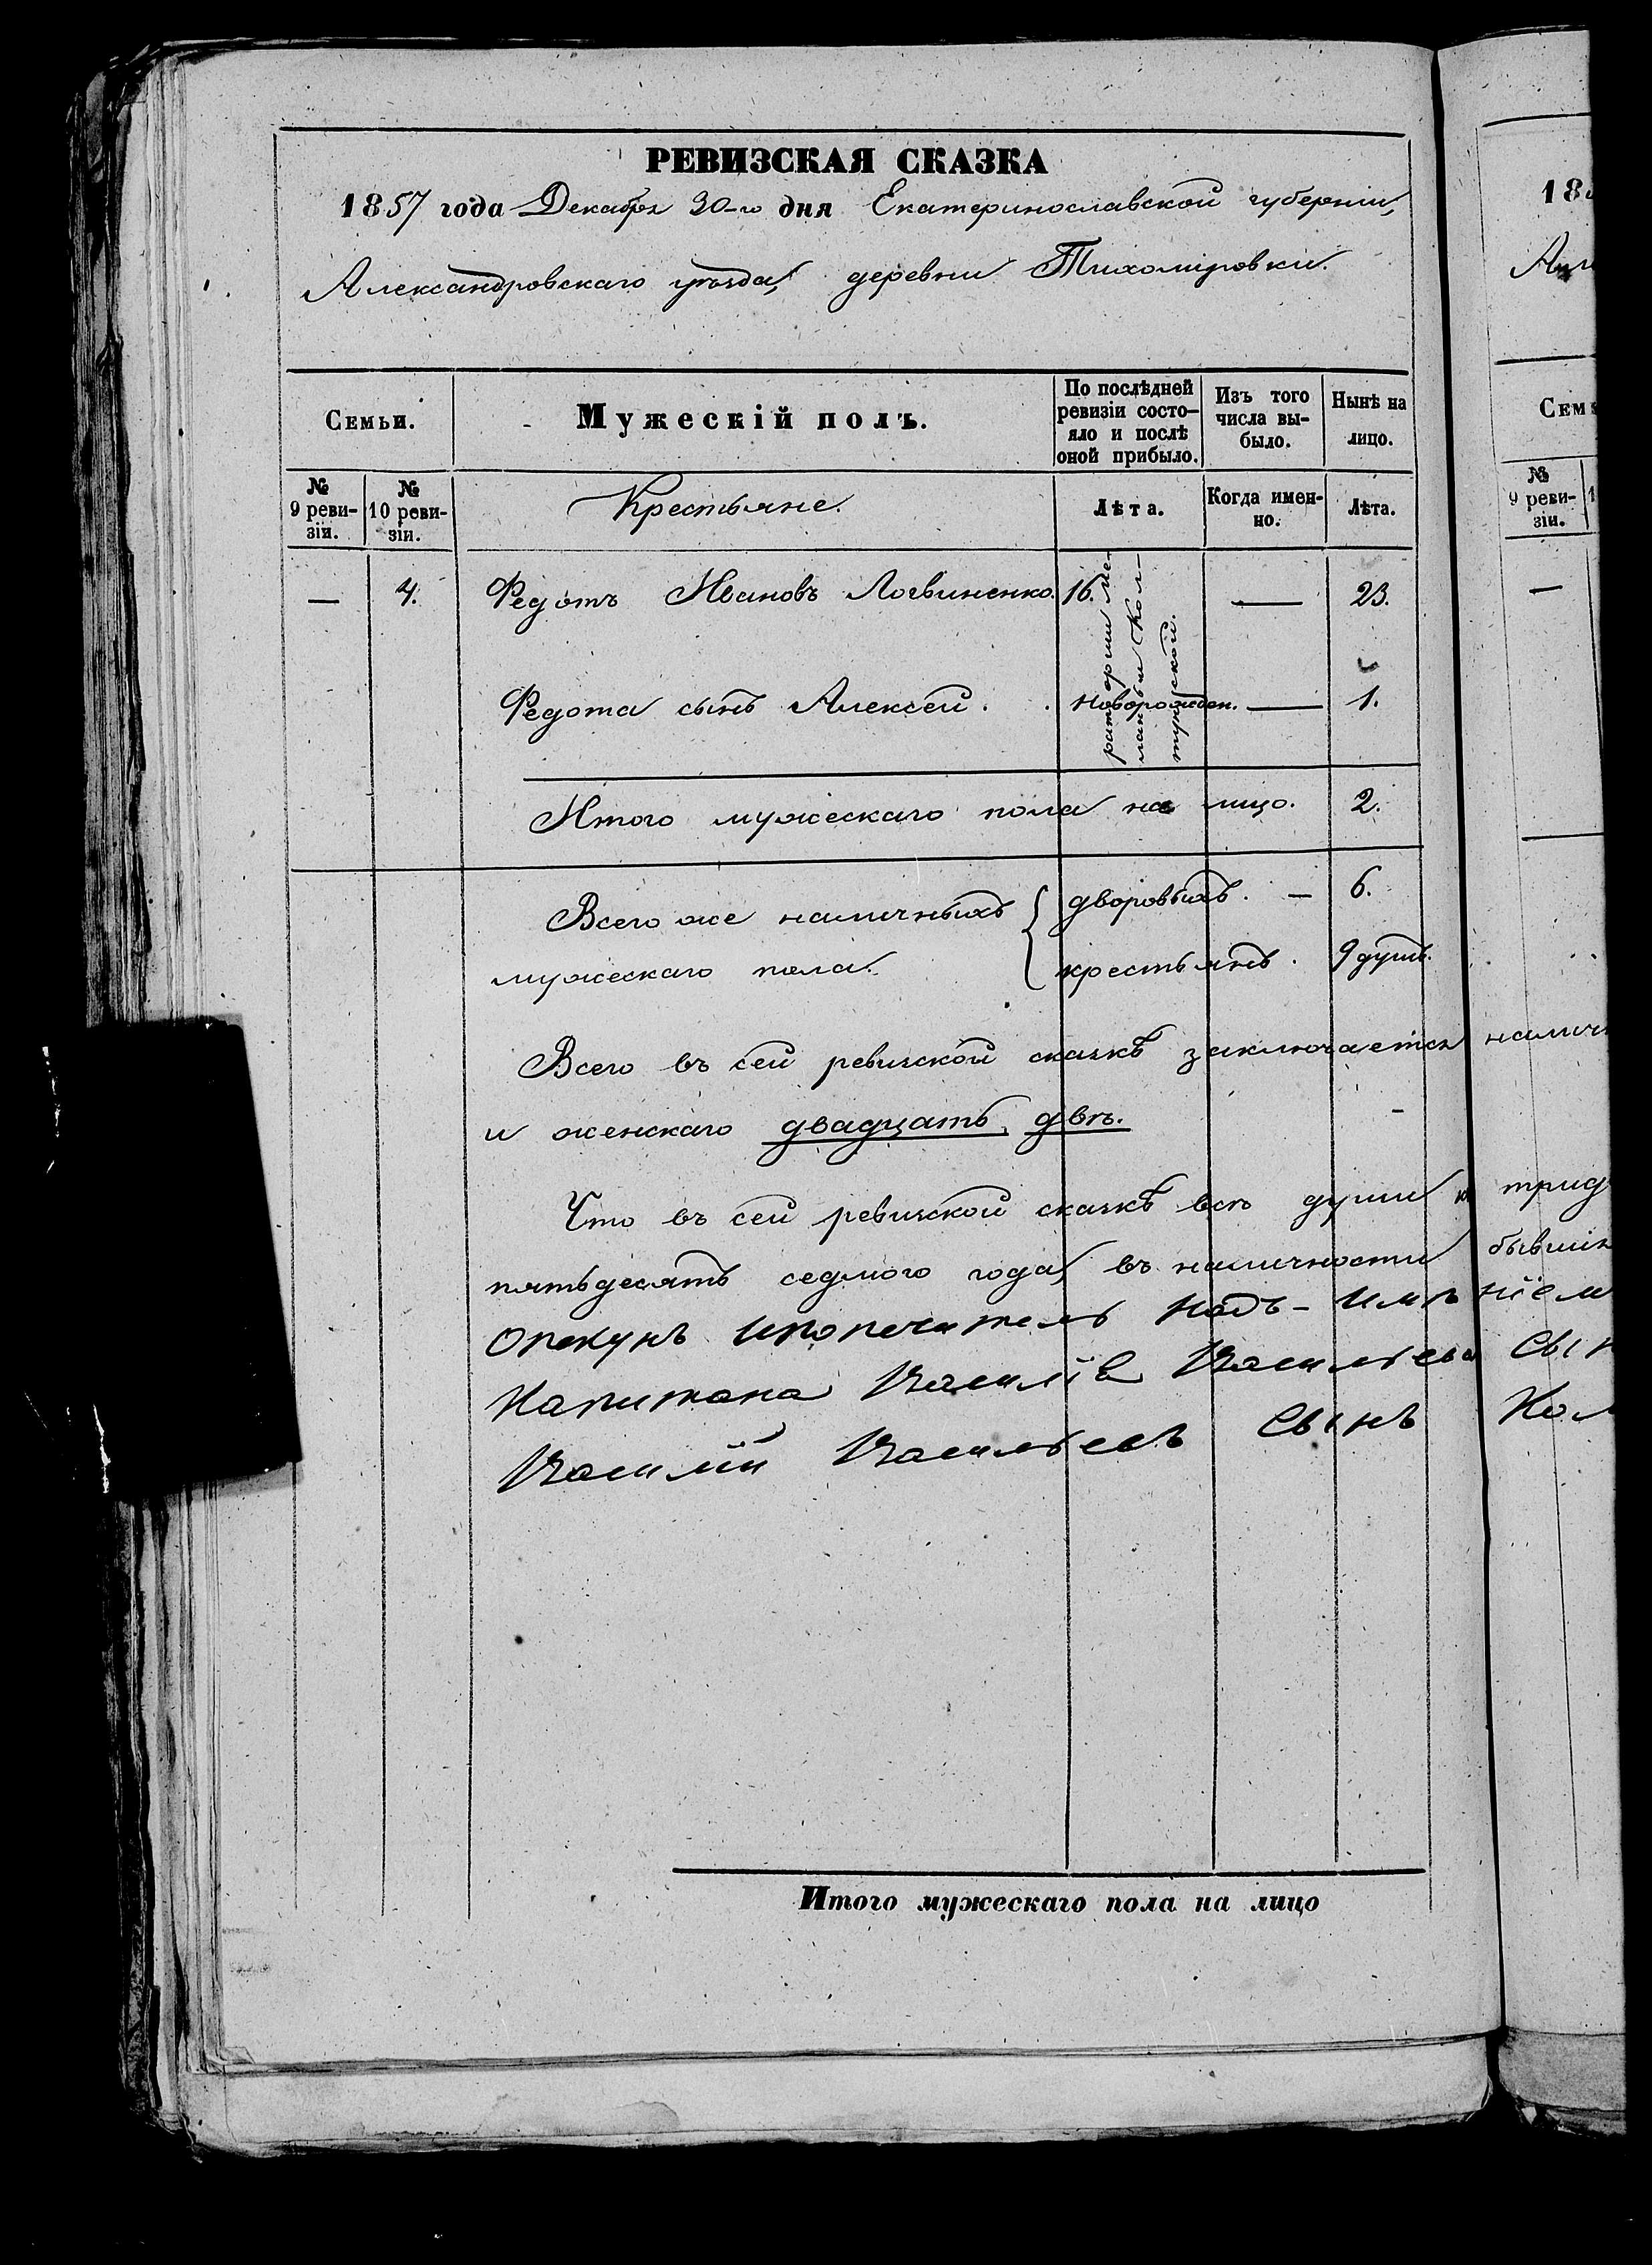 РЕВИЗСКАЯ СКАЗКА
1857 года Декабря 30-го дня Екатеринославской губерніи,
Александровскаго уѣзда, деревни Тихомировки.
Семьи.
Мужескій полъ.
По послѣдней ревизіи состо-
яло и послѣ оной прибыло.
Изъ того числа вы-
было.
Нынѣ на лицо.
№ 9 реви-
зіи.
№ 10 реви-
зіи.
Крестьяне.
Лѣта.
Когда имен-
но.
Лѣта.
— 4. Федотъ Ивановъ Логвиненко. 16. — 23.
Федота сынъ Алексей. Новорожден. — 1.
Итого мужескаго пола на лицо. 2.
Всего же наличныхъ { дворовыхъ. — 6.
мужескаго пола. крестьянъ. 9 душъ.
Всего въ сей ревизской сказкѣ заключается налич
и женскаго двадцать двѣ.
Что въ сей ревизской сказкѣ всѣ души трид
пятьдесятъ седмого года, въ наличности бывшія
Опекунъ ипопечитель Надъ-Имѣніем
Капитана Василіе Васильева Сын
Василій Васильевъ Сынъ Кол
Итого мужескаго пола на лицо
18
Але
Сем
№ 9 реви-
зіи.
—